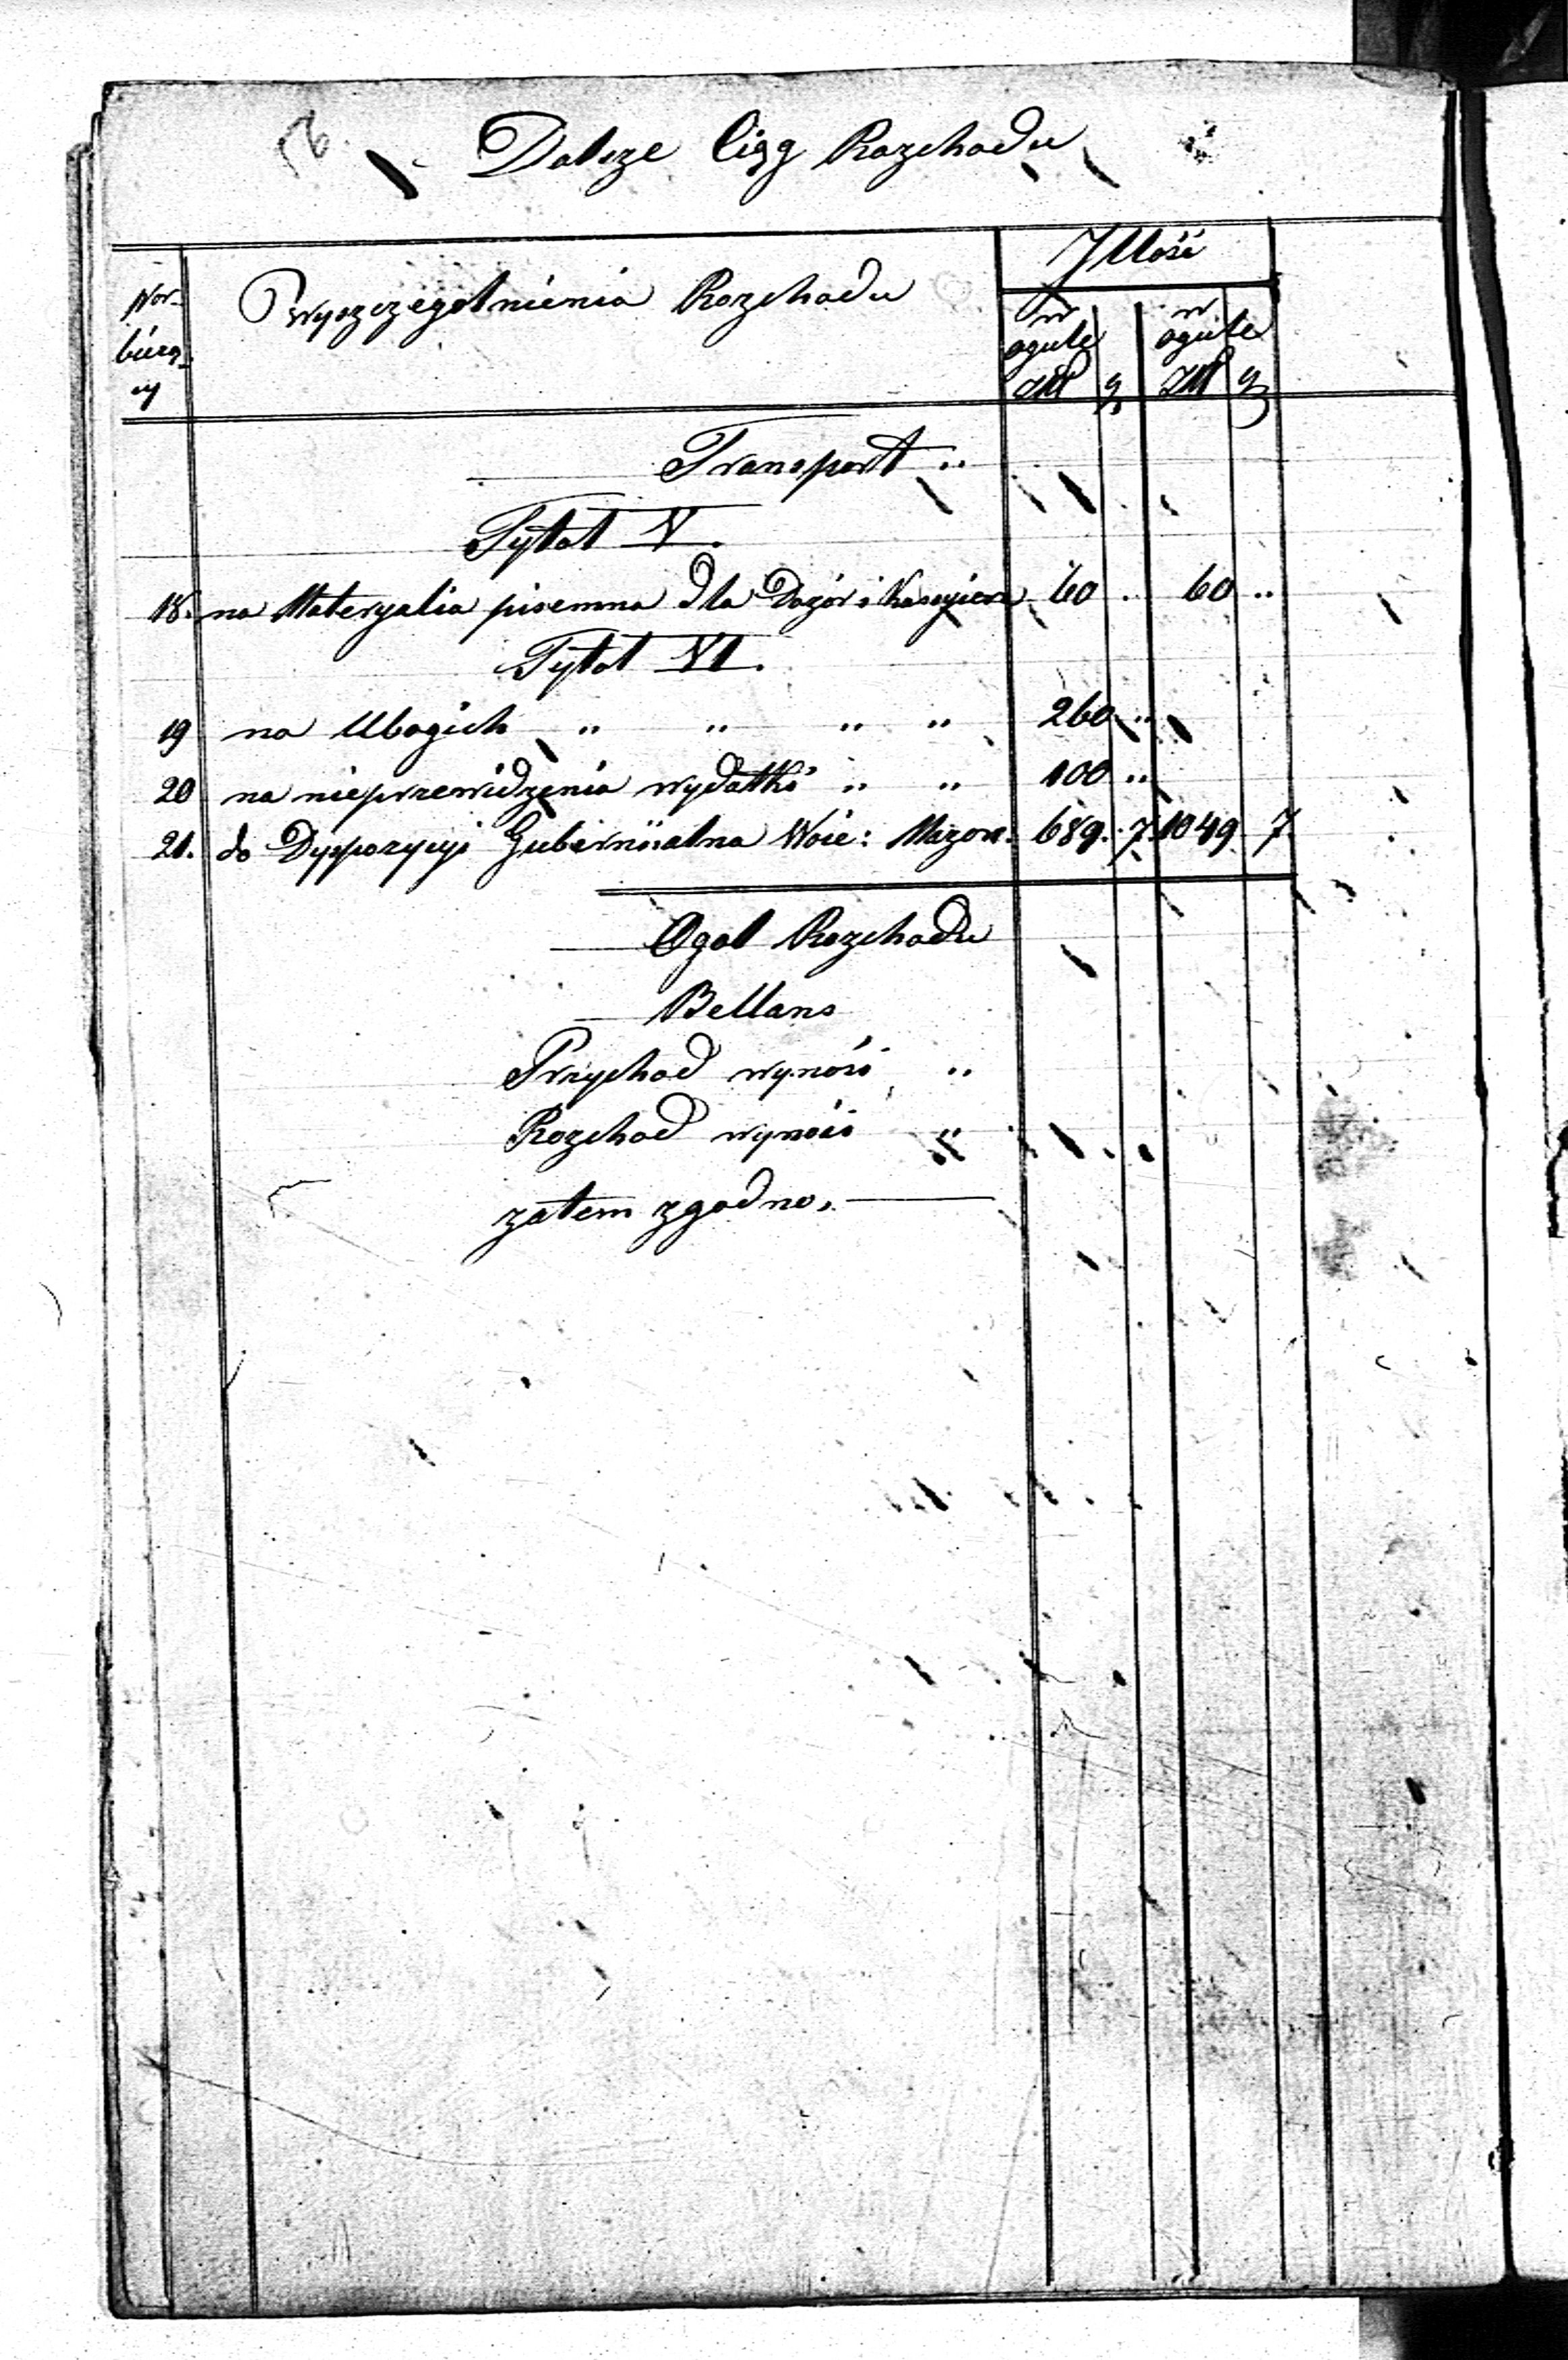 Dalsze Ciąg Rozchodu
Jllość
Nor-
bieżą-
cy
Wyszczegolnienia Rozchodu
w ogule
w ogule
Złł g Złł g
Transport "
Tytoł V.
18. na Materyalia pisemna dla Dozór i Kassyiera 60 .. 60 ..
Tytoł VI.
19 na Ubogich " " " " 260 ..
20 na nieprzewidzenia wydatki " " 100 ..
21. do Dyspozycyi Gubernïialna Woie: Mazow: 689. 7. 1049 7.
Ogol Rozchodu
Bellans
Przychod wynośi "
Rozchod wynośi "
zatem zgodno.